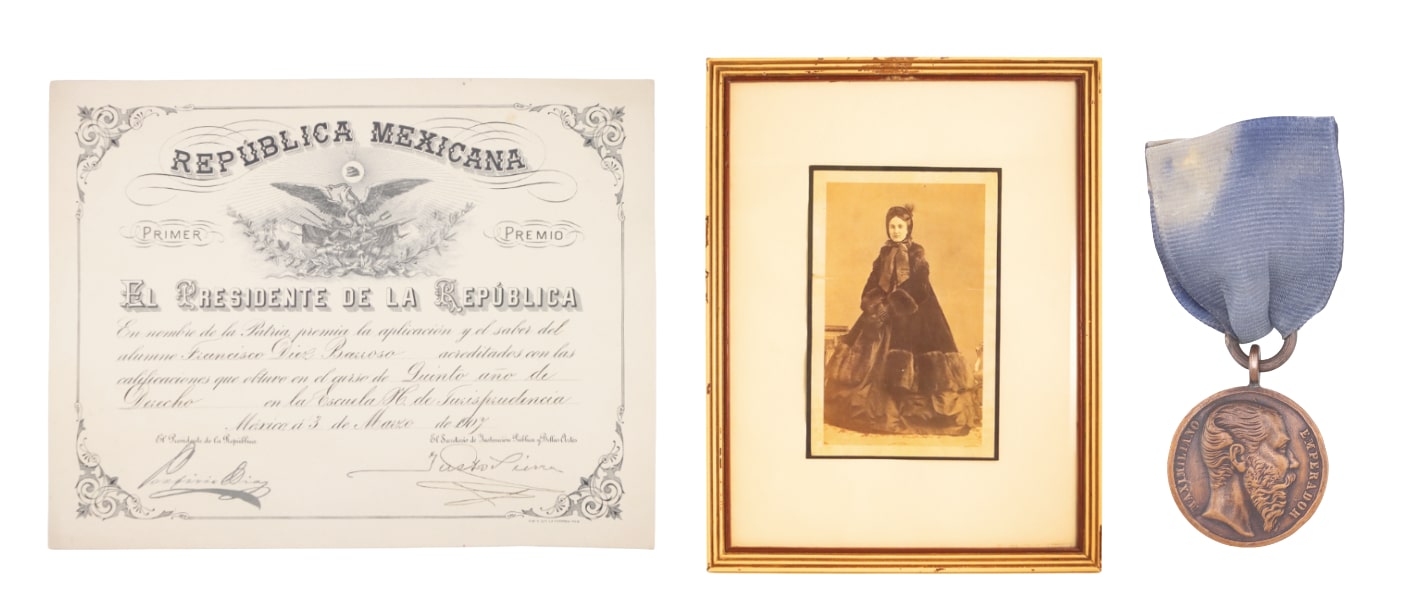 REPÚBLICA MEXICANA
PRIMER PREMIO
EL PRESIDENTE DE LA REPÚBLICA
En nombre de la Patria, premia la aplicación y el saber del
alumno Francisco Diez Barroso acreditados con las
calificaciones que obtuvo en el curso de Quinto año de
Derecho en la Escuela N. de Jurisprudencia
México á 3 de Marzo de 1907
El Presidente de la República El Secretario de Instrucción Pública y Bellas Artes
Porfirio Díaz Justo Sierra
MAXIMILIANO EMPERADOR